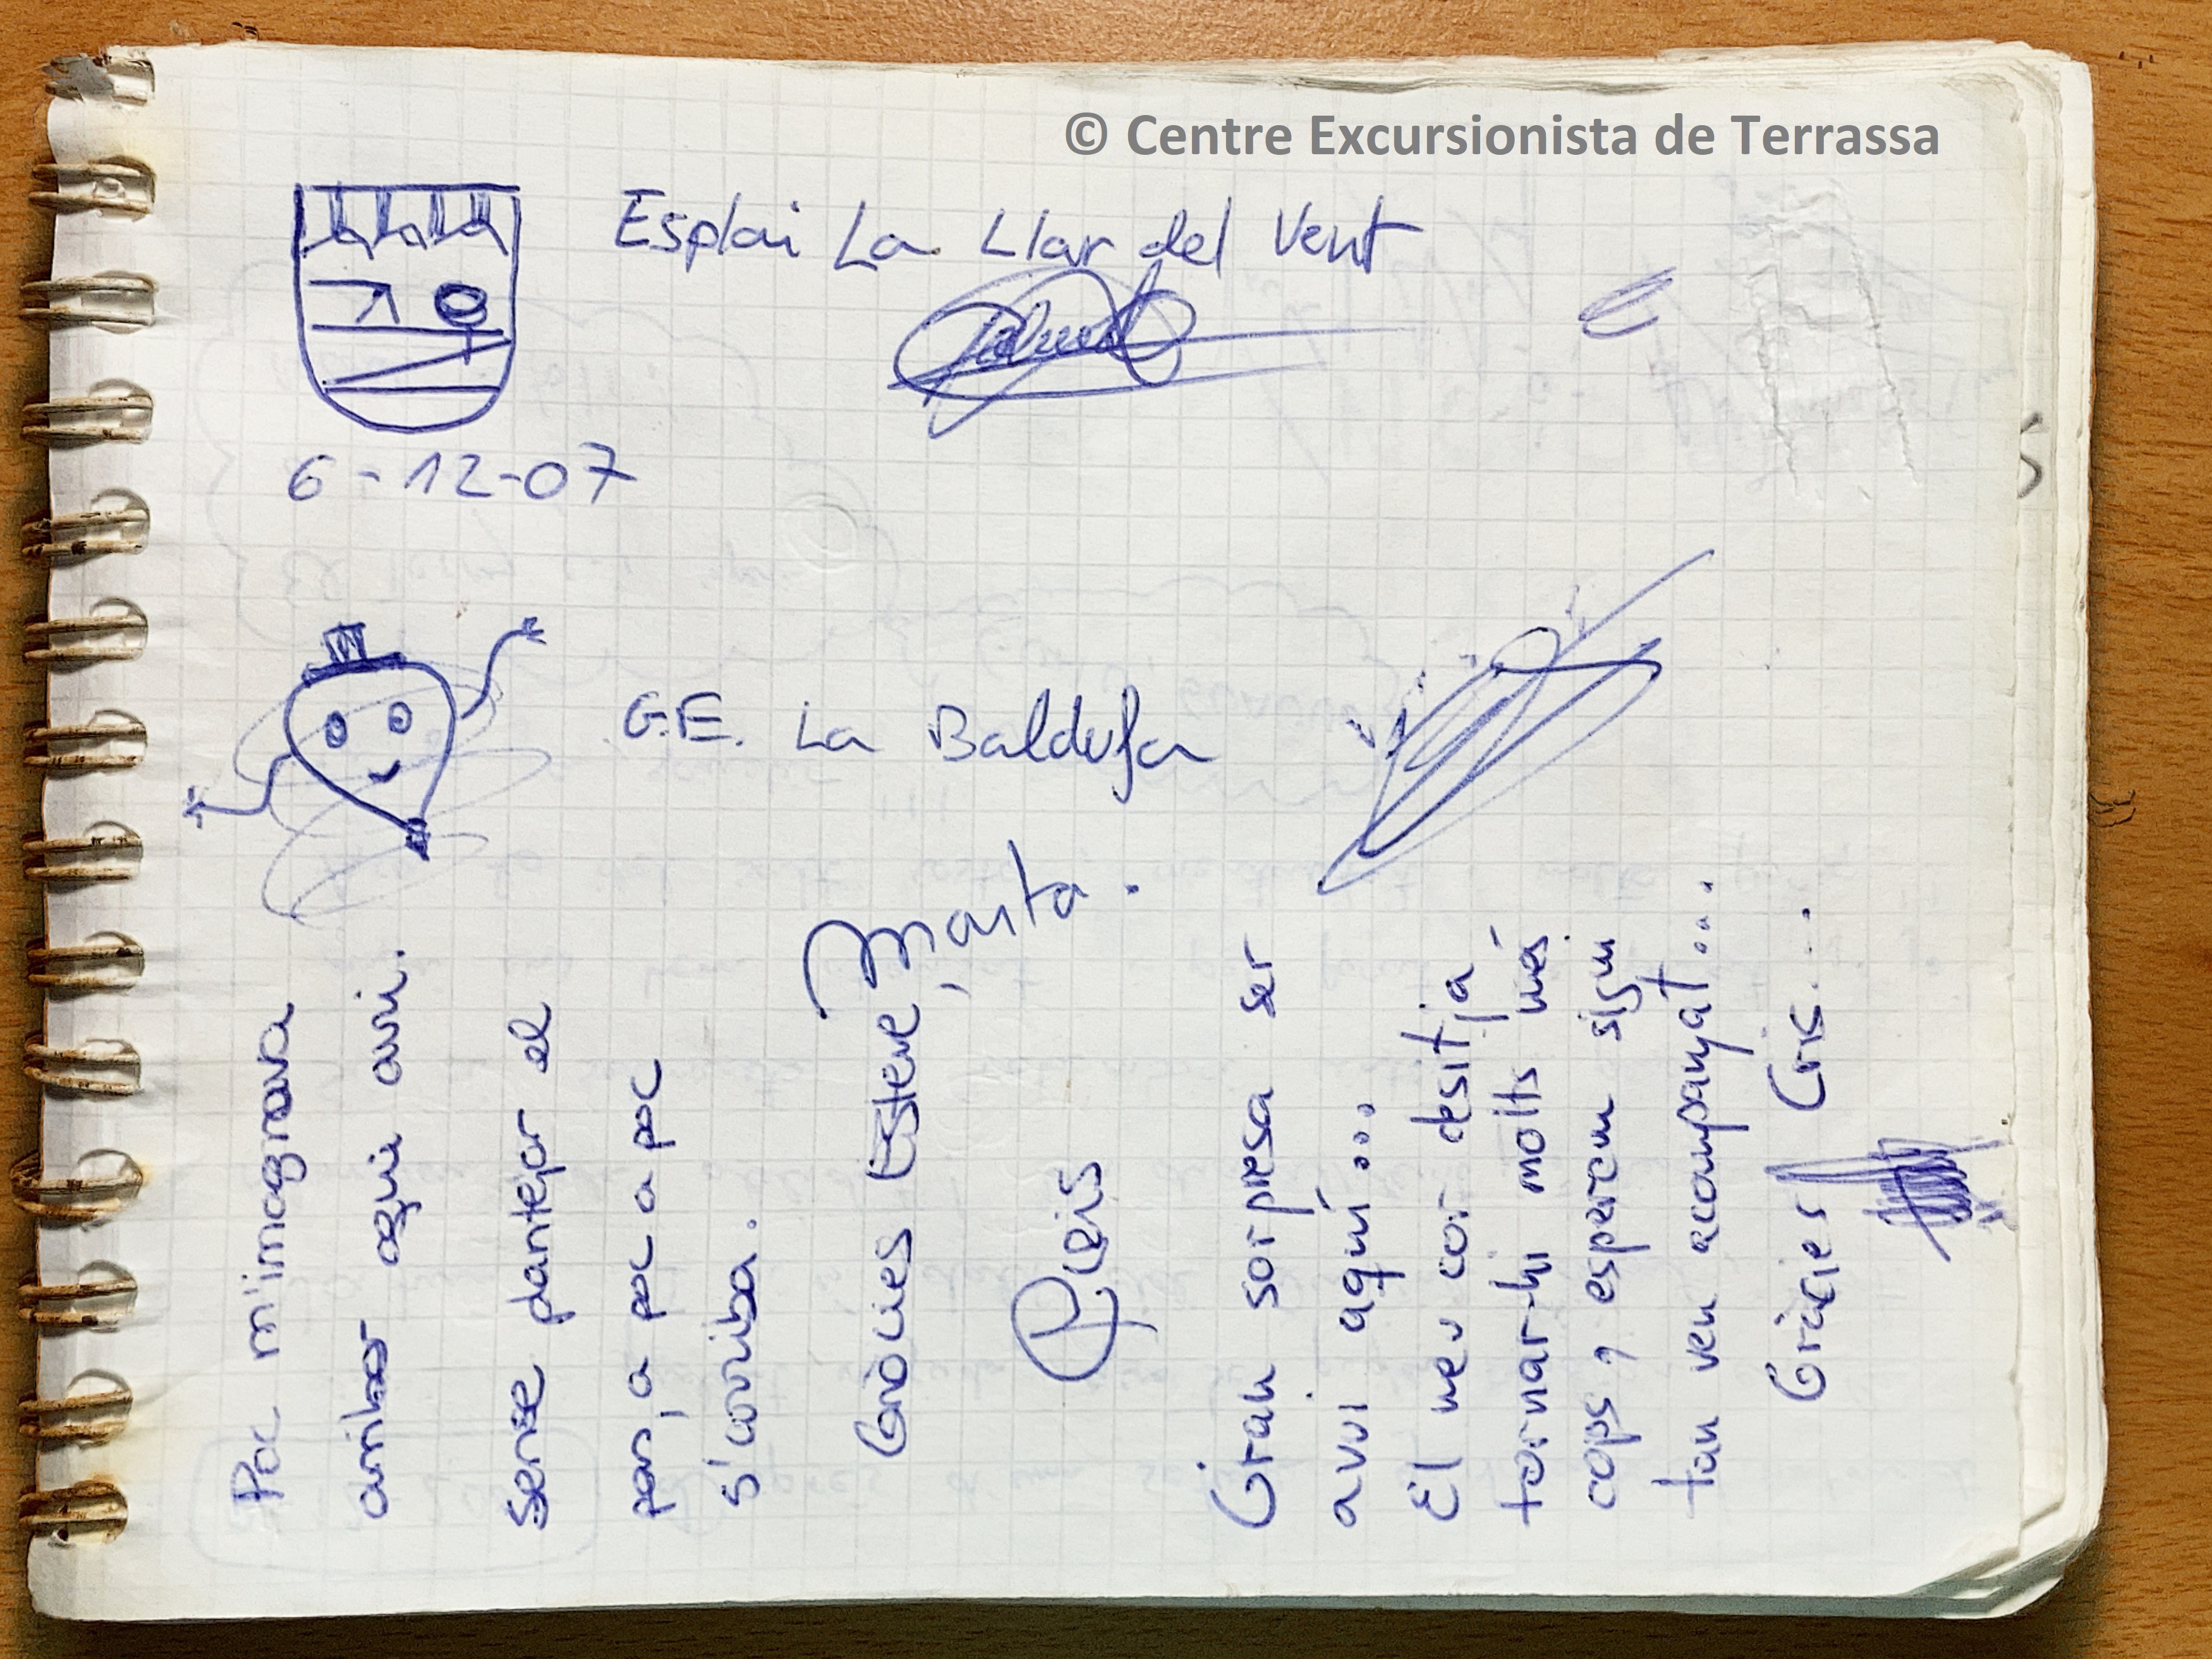 © Centre Excursionista de Terrassa
Esplai La Llar del Vent
6-12-07
G.E. La Baldufa
Poc m'imaginava
arribar aquí avui.
Sense plantejar el
per, a poc a poc
s'arriba.
Gràcies Esteve, Marta.
Gran sorpresa ser
avui aquí...
El meu cor desitja
tornar-hi molts més
cops, esperem sigui
tan ven acompanyat...
Gràcies Cris...